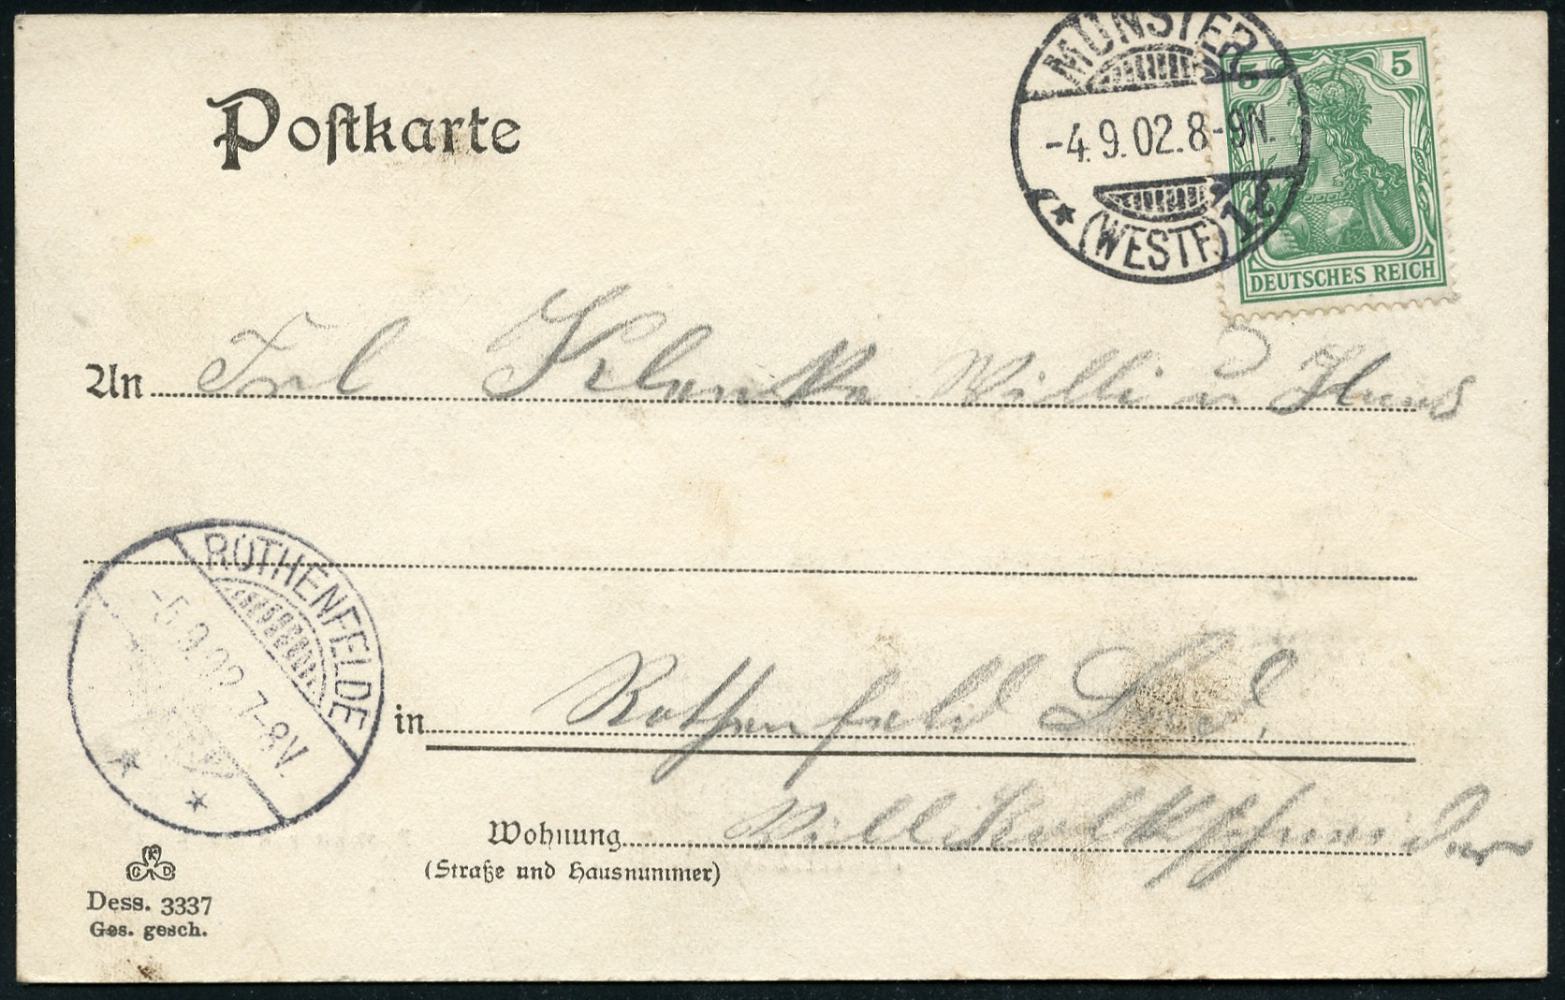 Postkarte
MÜNSTER
-4.9.02.8-9N.
(WESTF.)
5 5
DEUTSCHES REICH
An Frl Klanke Willi u Hans
ROTHENFELDE
-5.9.02.7-8V.
in Rothenfeld
Wohnung
(Straße und Hausnummer)
K
C D
Dess. 3337
Ges. gesch.